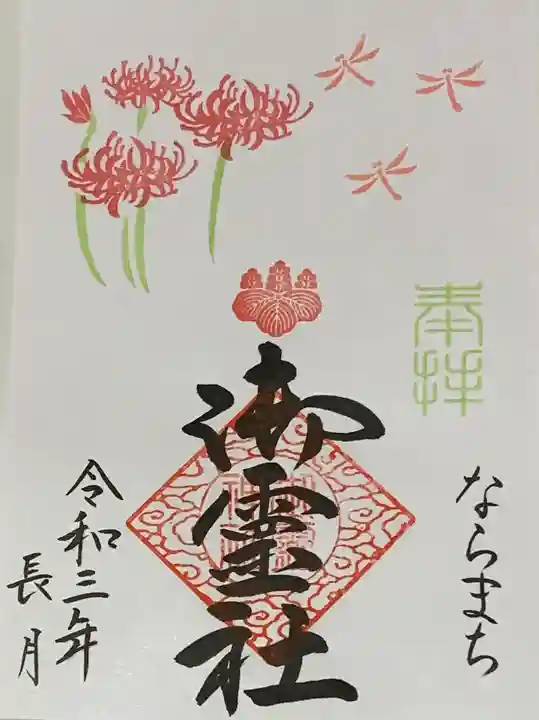 奉拝
ならまち
御霊社
令和三年
長月